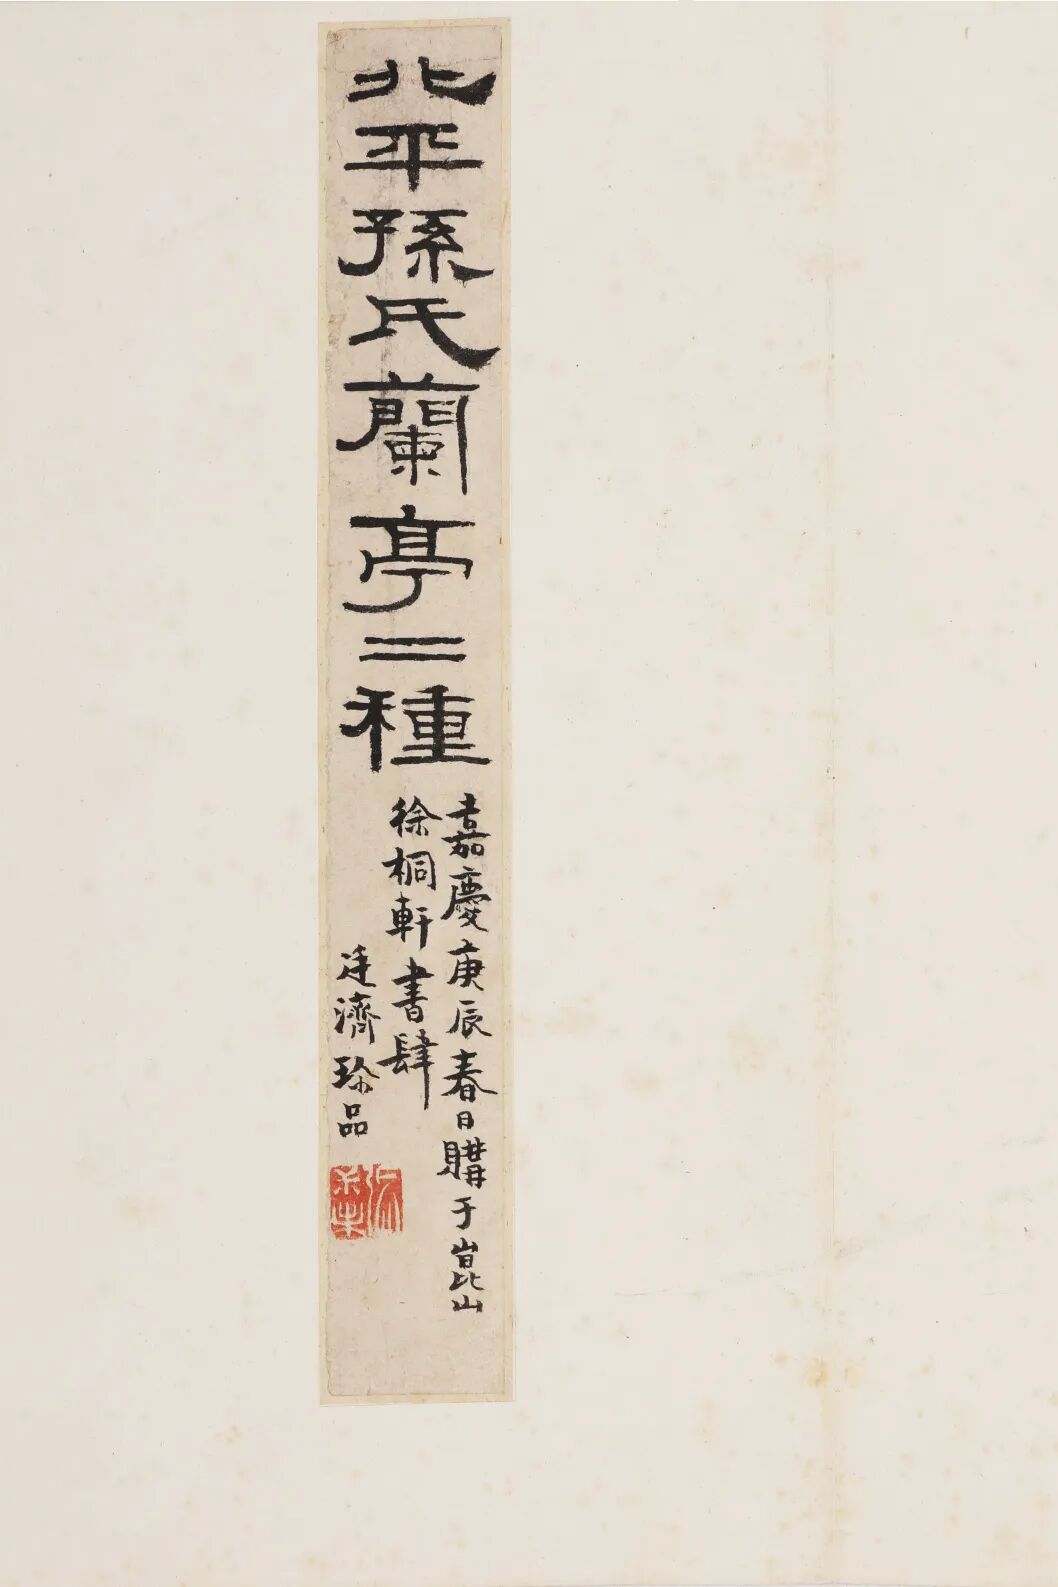 北平孫氏蘭亭二種
嘉慶庚辰春日購于崑山
徐桐軒書肆
廷濟珍品